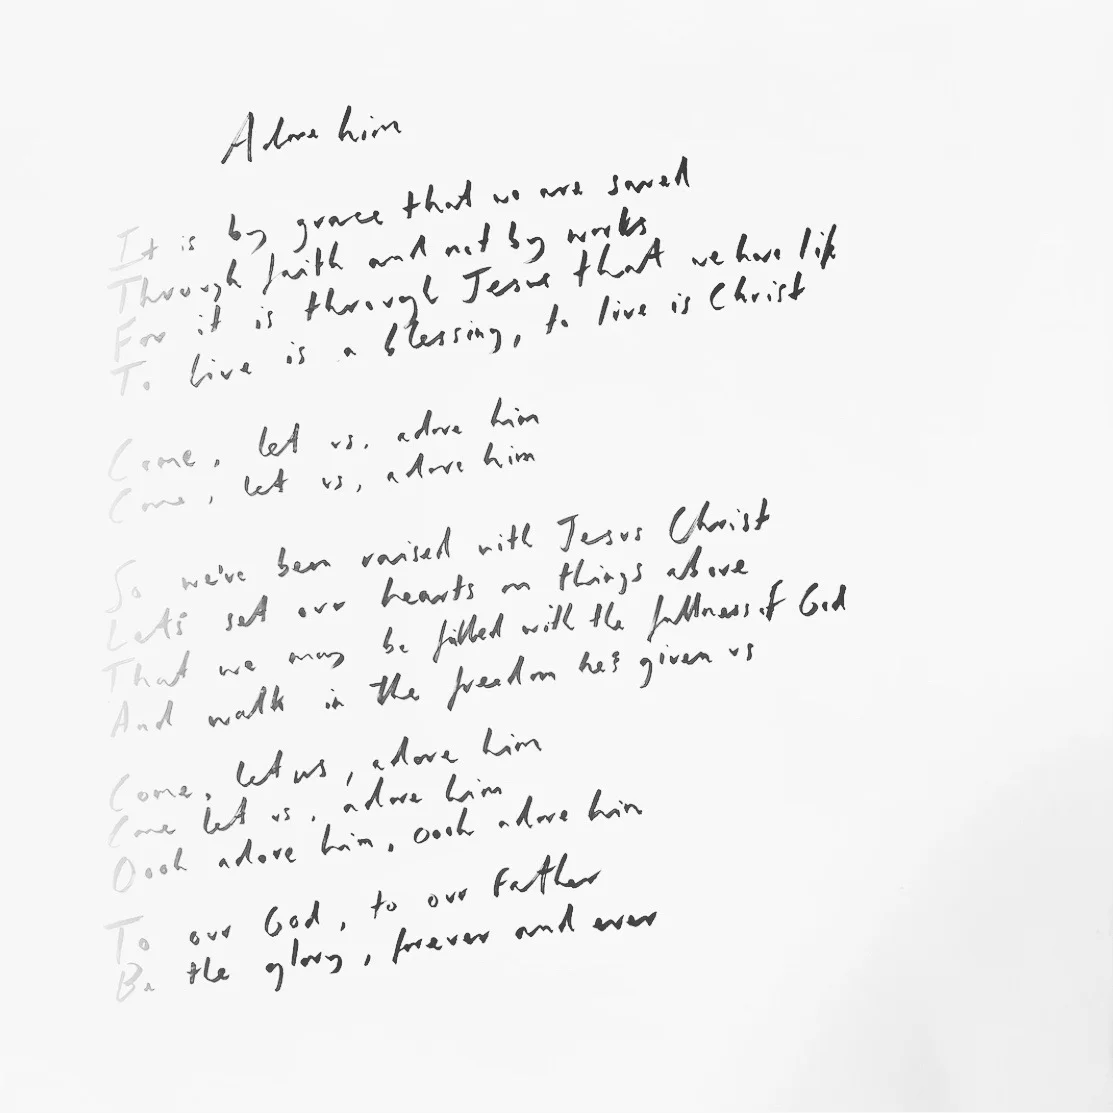 Adore him
It is by grace that we are saved
Through faith and not by works
For it is through Jesus that we have life
To live is a blessing, to live is Christ
Come, let us, adore him
Come, let us, adore him
So we've been raised with Jesus Christ
Let's set our hearts on things above
That we may be filled with the fullness of God
And walk in the freedom he's given us
Come, let us, adore him
Come let us, adore him
Oooh adore him, Oooh adore him
To our God, to our Father
Be the glory, forever and ever